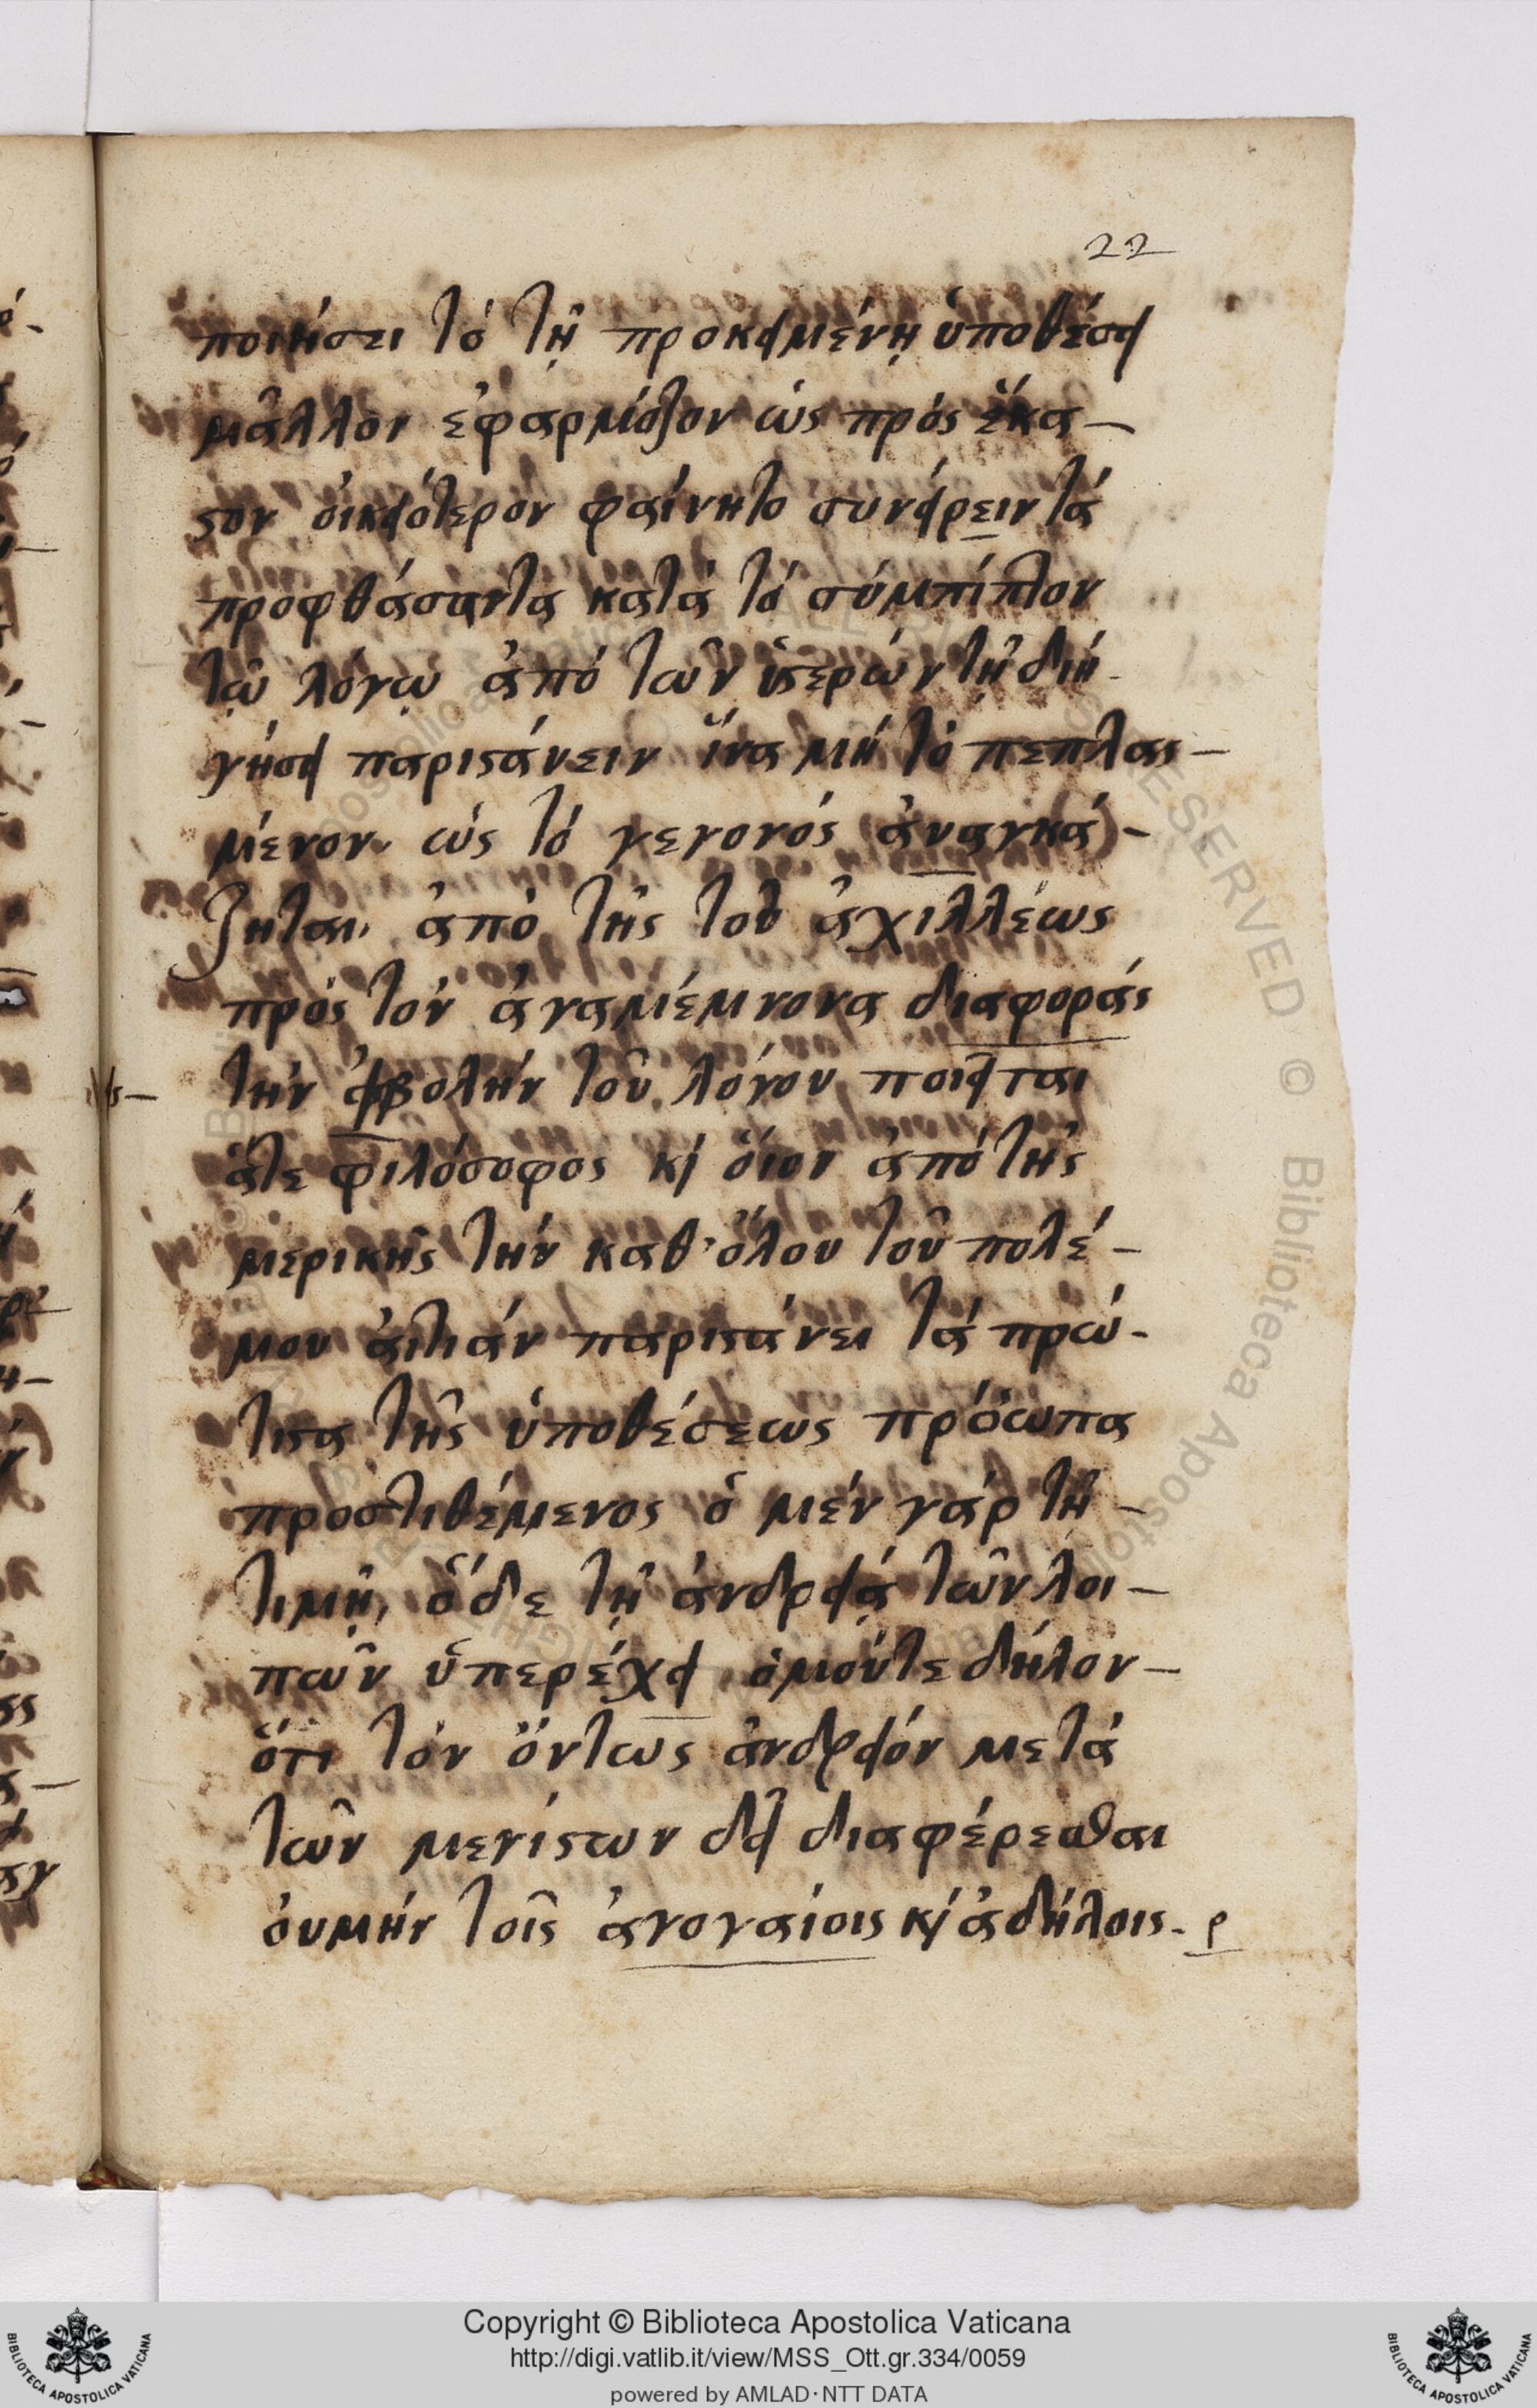 22
ποιήσει τό τῇ προκειμένῃ ὑποθέσει
μᾶλλον ἐφαρμόζον ὡς πρός ἕκα-
ςον οἰκειότερον φαίνητο συνείρειν τά
προφθάσαντα κατά τό σύμπίπτον
τῷ λόγῳ ἀπό τῶν ὑςερῶν τῇ διη-
γήσει παριςάνειν ἵνα μή τό πεπλας-
μένον, ὡς τό γεγονός ἀναγκά-
ζηται, ἀπό τῆς τοῦ ἀχιλλέως
πρός τόν ἀγαμέμνονα διαφοράς
τήν εἰσβολήν τοῦ λόγου ποιεῖται
ἅτε φιλόσοφος κ̀ οἷον ἀπό τῆς
μερικῆς τήν καθ' ὅλου τοῦ πολέ-
μου ἀιτιάν παριςάνει τά πρώ-
τιςα τῆς ὑποθέσεως πρόσωπα
προστιθέμενος ὁ μέν γάρ τῇ
τιμῇ, ὅδε τῇ ἀνδρείᾳ τῶν λοι-
πῶν ὑπερέχει ὁμούτε δήλον-
ότι τόν ὄντως ἀνδρεῖόν μετά
τῶν μεγίςων δεῖ διαφέρεσθαι
ὀυμήν τοῖς ἀγοναίοις κ̀ ἀδήλοις. ρ
Copyright © Biblioteca Apostolica Vaticana
http://digi.vatlib.it/view/MSS_Ott.gr.334/0059
powered by AMLAD·NTT DATA
BIBLIOTECA APOSTOLICA VATICANA
BIBLIOTECA APOSTOLICA VATICANA